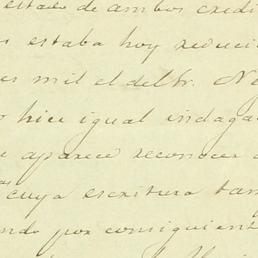 estado de ambos credi
estaba hoy reduci
es mil el del Sr. N
hice igual indaga
aparece reconocer
cuya escritura tam
ndo por consiguient